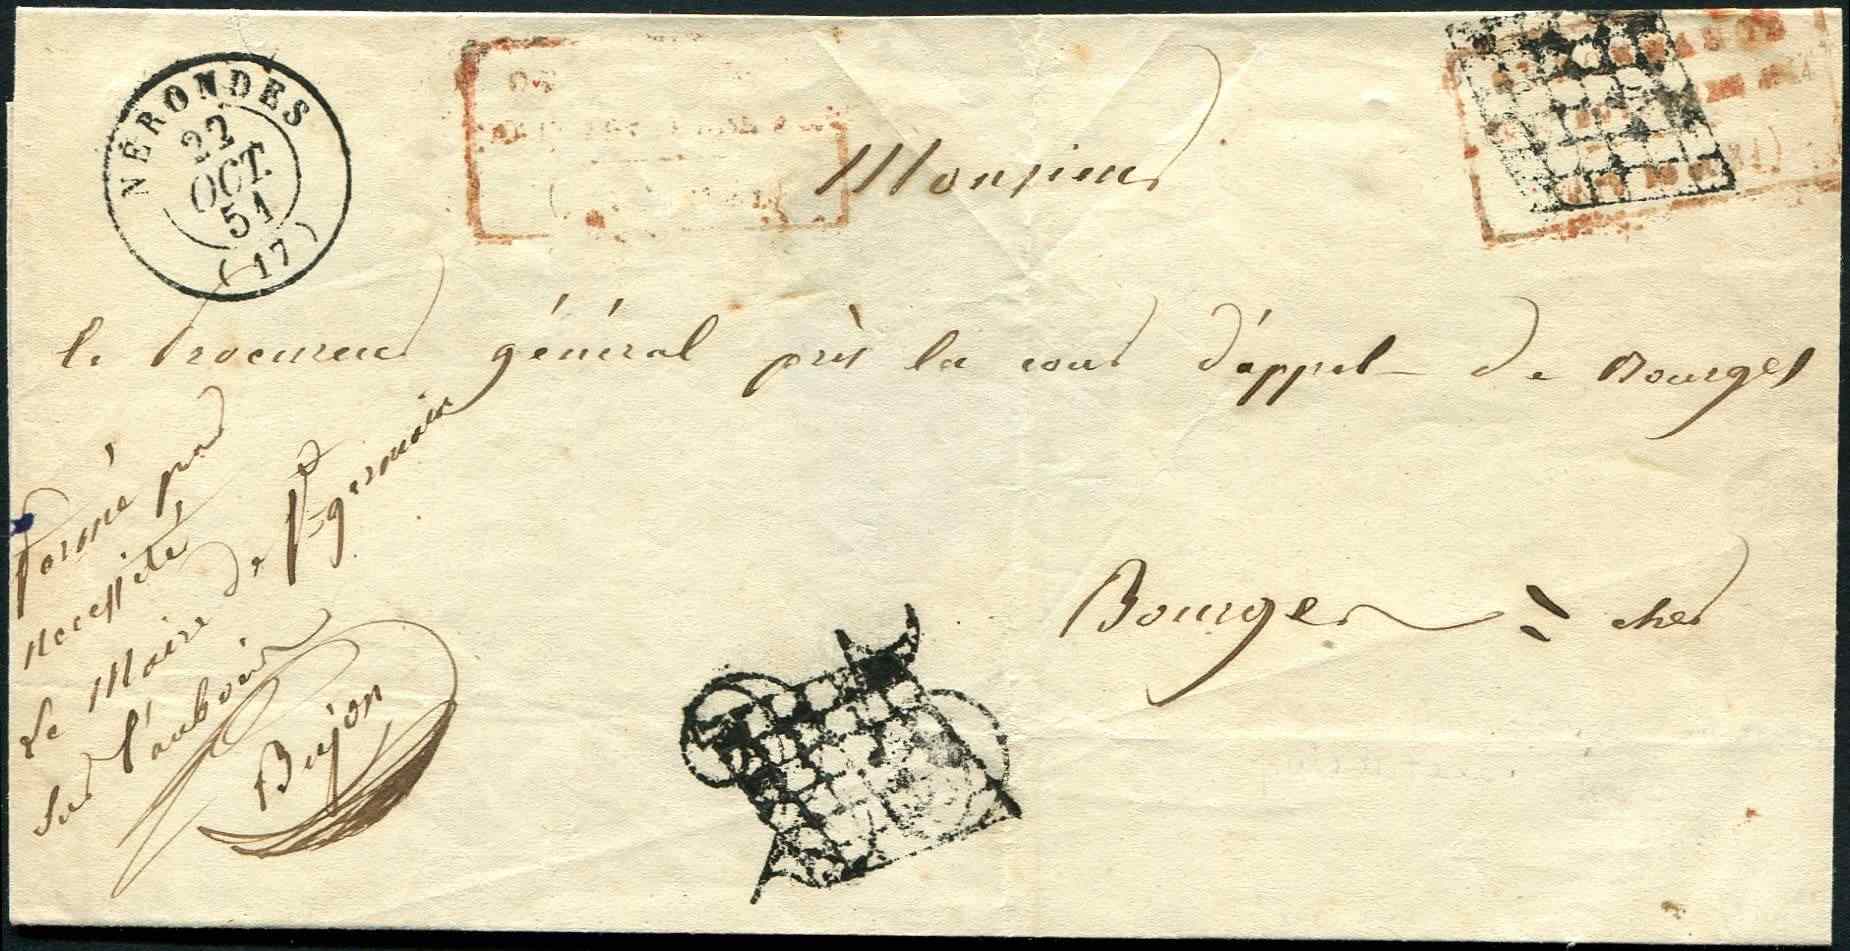 NÉRONDES
22
OCT.
51
(17)
Monsieur
le Procureur général près la cour d'appel de Bourges
Bourges = cher
Fermé par
necessité
Le Maire de St germain
sur l'aubois
Bujon